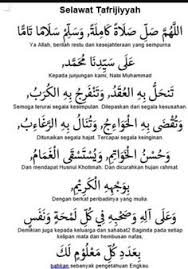 Selawat Tafrijiyyah
اللَّهُمَّ صَلِّ صَلَاةً كَامِلَةً، وَسَلِّمْ سَلَامًا تَامًّا
Ya Allah, berilah restu dan kesejahteraan yang sempurna
عَلَى سَيِّدِنَا مُحَمَّدٍ،
Kepada junjungan kami, Nabi Muhammad
تَنْحَلُّ بِهِ الْعُقَدُ، وَتَنْفَرِجُ بِهِ الْكُرَبُ،
Semoga terurai segala kesimpulan. Dilepaskan dari segala kesusahan.
وَتُقْضَى بِهِ الْحَوَائِجُ، وَتُنَالُ بِهِ الرَّغَائِبُ،
Ditunaikan segala hajat. Tercapai segala keinginan.
وَحُسْنُ الْخَوَاتِيمِ، وَيُسْتَسْقَى الْغَمَامُ،
Dan mendapat Husnul Khotimah. Dan dicurahkan hujan rahmat
بِوَجْهِهِ الْكَرِيمِ،
Dengan berkat peribadinya yang mulia
وَعَلَى آلِهِ وَصَحْبِهِ فِي كُلِّ لَمْحَةٍ وَنَفَسٍ
Demikian juga kepada keluarga dan sahabat2 Baginda pada setiap
kelipan mata dan hembusan nafas,
بِعَدَدِ كُلِّ مَعْلُومٍ لَكَ
bahkan sebanyak pengetahuan Engkau